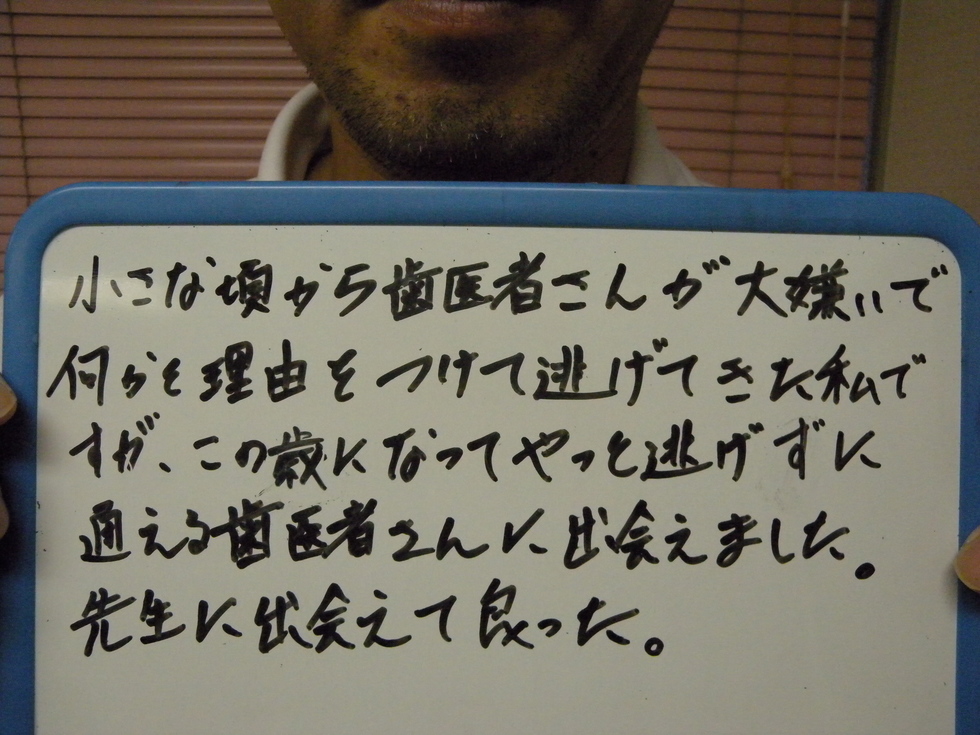 小さな頃から歯医者さんが大嫌いで
何かと理由をつけて逃げてきた私で
すが、この歳になってやっと逃げずに
通える歯医者さんに出会えました。
先生に出会えて良った。